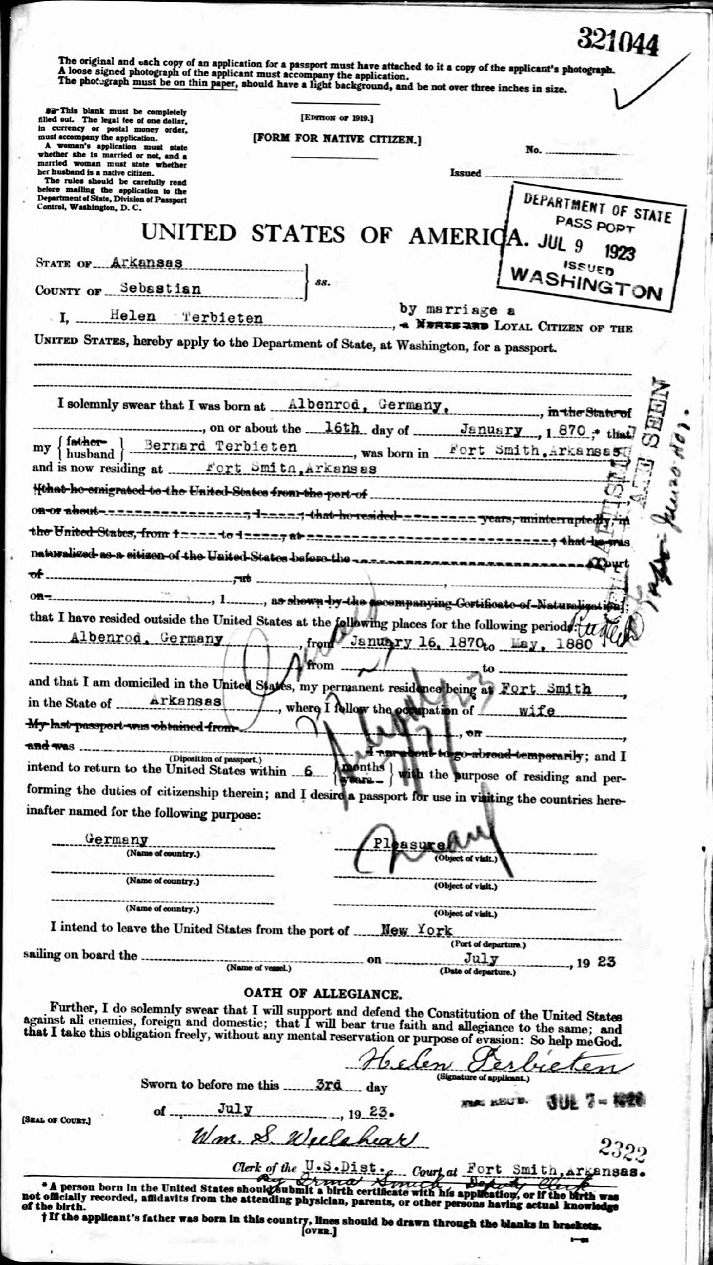 321044
The original and each copy of an application for a passport must have attached to it a copy of the applicant's photograph.
A loose signed photograph of the applicant must accompany the application.
The photograph must be on thin paper, should have a light background, and be not over three inches in size.
This blank must be completely
filled out. The legal fee of one dollar,
in currency or postal money order,
must accompany the application.
A woman's application must state
whether she is married or not, and a
married woman must state whether
her husband is a native citizen.
The rules should be carefully read
before mailing the application to the
Department of State, Division of Passport
Control, Washington, D. C.
[EDITION OF 1919.]
[FORM FOR NATIVE CITIZEN.]
No.
Issued
DEPARTMENT OF STATE
PASSPORT
JUL 9 1923
ISSUED
WASHINGTON
UNITED STATES OF AMERICA.
STATE OF Arkansas
COUNTY OF Sebastian
ss.
by marriage a
I, Helen Terbieten, a LOYAL CITIZEN OF THE
UNITED STATES, hereby apply to the Department of State, at Washington, for a passport.
I solemnly swear that I was born at Albenrod, Germany, in the State of
, on or about the 16th day of January, 1870;* that
my {father husband} Bernard Terbieten, was born in Fort Smith, Arkansas
and is now residing at Fort Smith, Arkansas
that he emigrated to the United States from the port of
on or about , 1 ; that he resided years, uninterruptedly, in
the United States, from 1 to 1 , at ; that he was
naturalized as a citizen of the United States before the Court
of , at ,
on , 1 , as shown by the accompanying Certificate of Naturalization;
that I have resided outside the United States at the following places for the following periods:
Albenrod, Germany, from January 16, 1870 to May, 1880
, from to
and that I am domiciled in the United States, my permanent residence being at Fort Smith,
in the State of Arkansas, where I follow the occupation of wife
My last passport was obtained from , on ,
and was (Disposition of passport.) I am about to go abroad temporarily; and I
intend to return to the United States within 6 {months years} with the purpose of residing and per-
forming the duties of citizenship therein; and I desire a passport for use in visiting the countries here-
inafter named for the following purpose:
Germany Pleasure
(Name of country.) (Object of visit.)
(Name of country.) (Object of visit.)
(Name of country.) (Object of visit.)
I intend to leave the United States from the port of New York
(Port of departure.)
sailing on board the on July, 1923
(Name of vessel.) (Date of departure.)
OATH OF ALLEGIANCE.
Further, I do solemnly swear that I will support and defend the Constitution of the United States
against all enemies, foreign and domestic; that I will bear true faith and allegiance to the same; and
that I take this obligation freely, without any mental reservation or purpose of evasion: So help me God.
Helen Terbieten
(Signature of applicant.)
Sworn to before me this 3rd day
of July, 1923.
JUL 7
[SEAL OF COURT.]
Wm. S.
2322
Clerk of the U.S.Dist. Court at Fort Smith, Arkansas.
By Irma Smith, Deputy Clerk
* A person born in the United States should submit a birth certificate with his application, or if the birth was
not officially recorded, affidavits from the attending physician, parents, or other persons having actual knowledge
of the birth.
† If the applicant's father was born in this country, lines should be drawn through the blanks in brackets.
[OVER.]